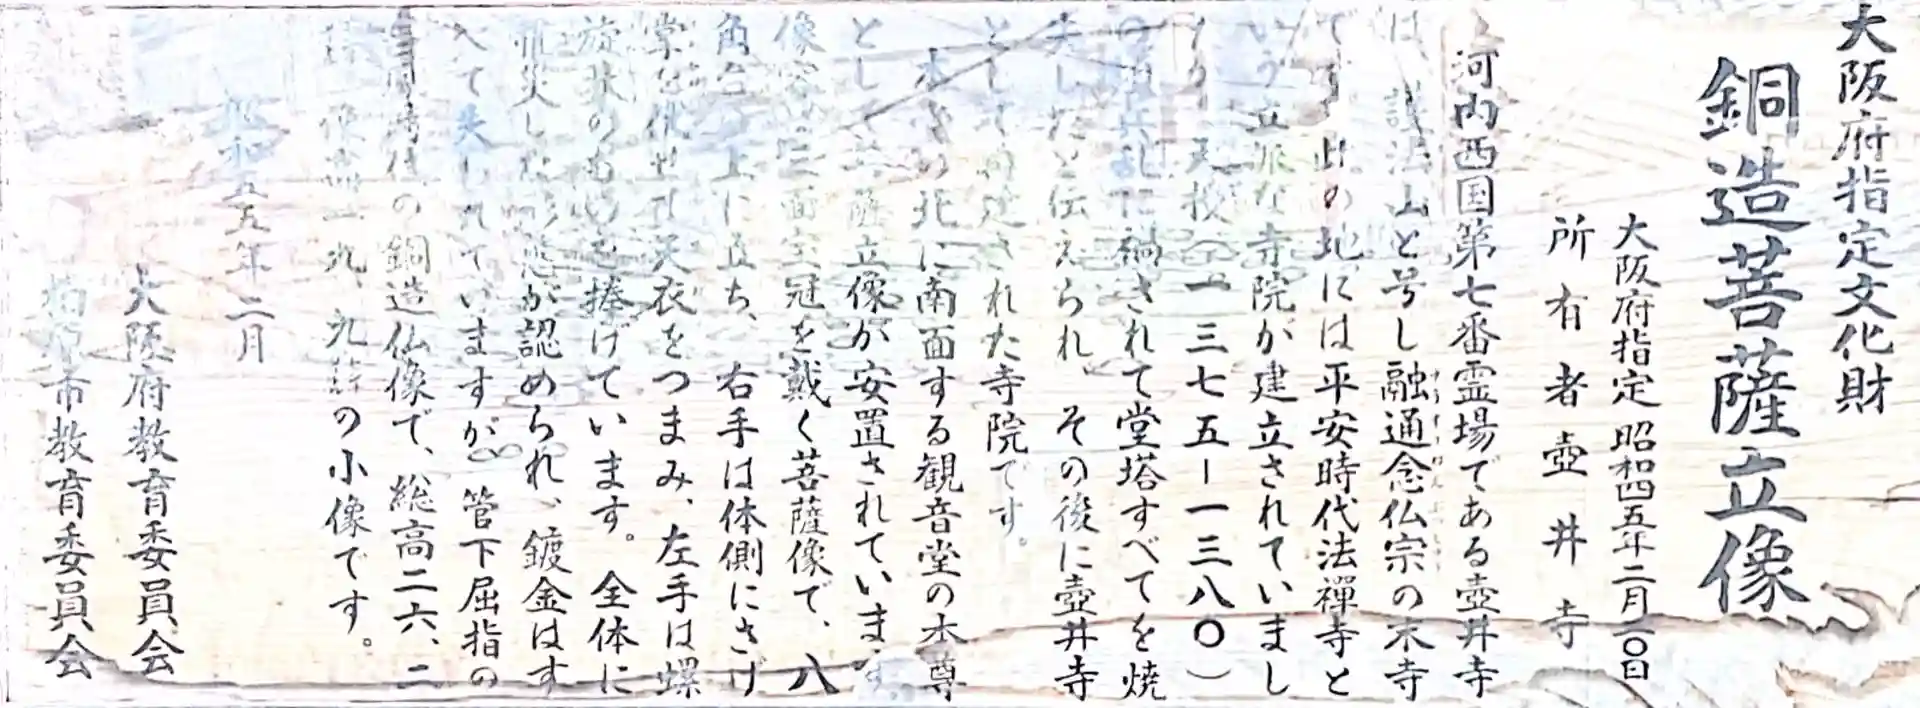 大阪府指定文化財
銅造菩薩立像
大阪府指定 昭和四五年二月二〇日
所有者 壺井寺
河内西国第七番霊場である壺井寺
は、護法山と号し融通念仏宗の末寺
です 此の地には平安時代法禪寺と
いう立派な寺院が建立されていまし
天授(一三七五ー一三八〇)
の兵乱に禍されて堂塔すべてを焼
失したと伝えられ、その後に壺井寺
として再建された寺院です。
本寺の北に南面する観音堂の本尊
として菩薩立像が安置されています
像容は三面宝冠を戴く菩薩像で、八
角台上に立ち、右手は体側にさげ
掌を伏せれ天衣をつまみ、左手は螺
旋状のものを捧げています。全体に
罹災した が認められ、鍍金はす
べて失われていますが、管下屈指の
時代の銅造仏像で、総高二六、二
像高一九、九 の小像です。
昭和五五年二月
大阪府教育委員会
柏原市教育委員会